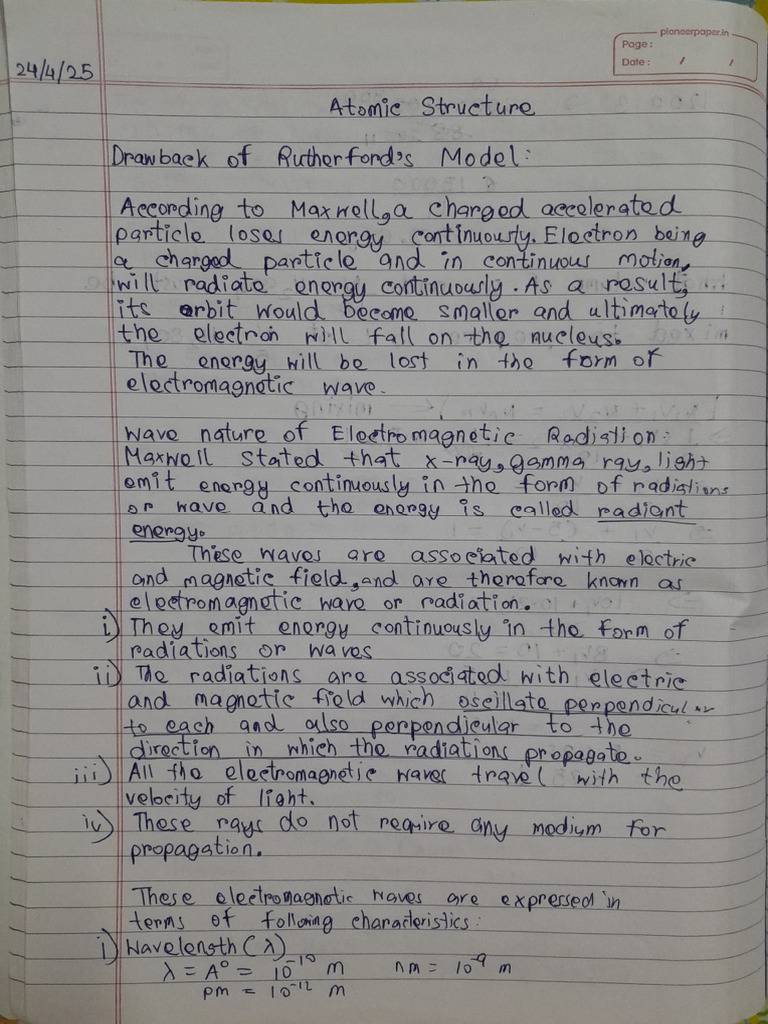 pioneerpaper.in
Page:
Date: / /
24/4/25
Atomic Structure
Drawback of Rutherford's Model:
According to Maxwell, a charged accelerated
particle loses energy continuously. Electron being
a charged particle and in continuous motion,
will radiate energy continuously. As a result,
its orbit would become smaller and ultimately
the electron will fall on the nucleus.
The energy will be lost in the form of
electromagnetic wave.
Wave nature of Electromagnetic Radiation:
Maxwell stated that x-ray, gamma ray, light
emit energy continuously in the form of radiations
or wave and the energy is called radiant
energy.
These waves are associated with electric
and magnetic field, and are therefore known as
electromagnetic wave or radiation.
i) They emit energy continuously in the form of
radiations or waves
ii) The radiations are associated with electric
and magnetic field which oscillate perpendicular
to each and also perpendicular to the
direction in which the radiations propagate.
iii) All the electromagnetic waves travel with the
velocity of light.
iv) These rays do not require any medium for
propagation.
These electromagnetic waves are expressed in
terms of following characteristics:
i) Wavelength (λ)
λ = A° = 10⁻¹⁰ m nm = 10⁻⁹ m
pm = 10⁻¹² m